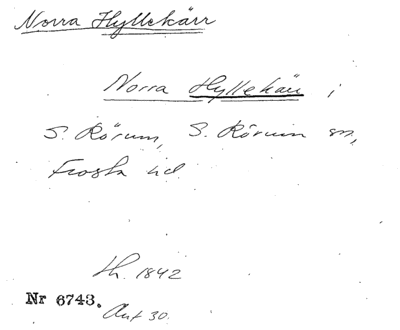 Norra Hyllekärr
Norra Hyllekärr i
S. Rörum, S. Rörum sn,
Frosta hd
Lh. 1842
Nr 6743.
Ant 30.